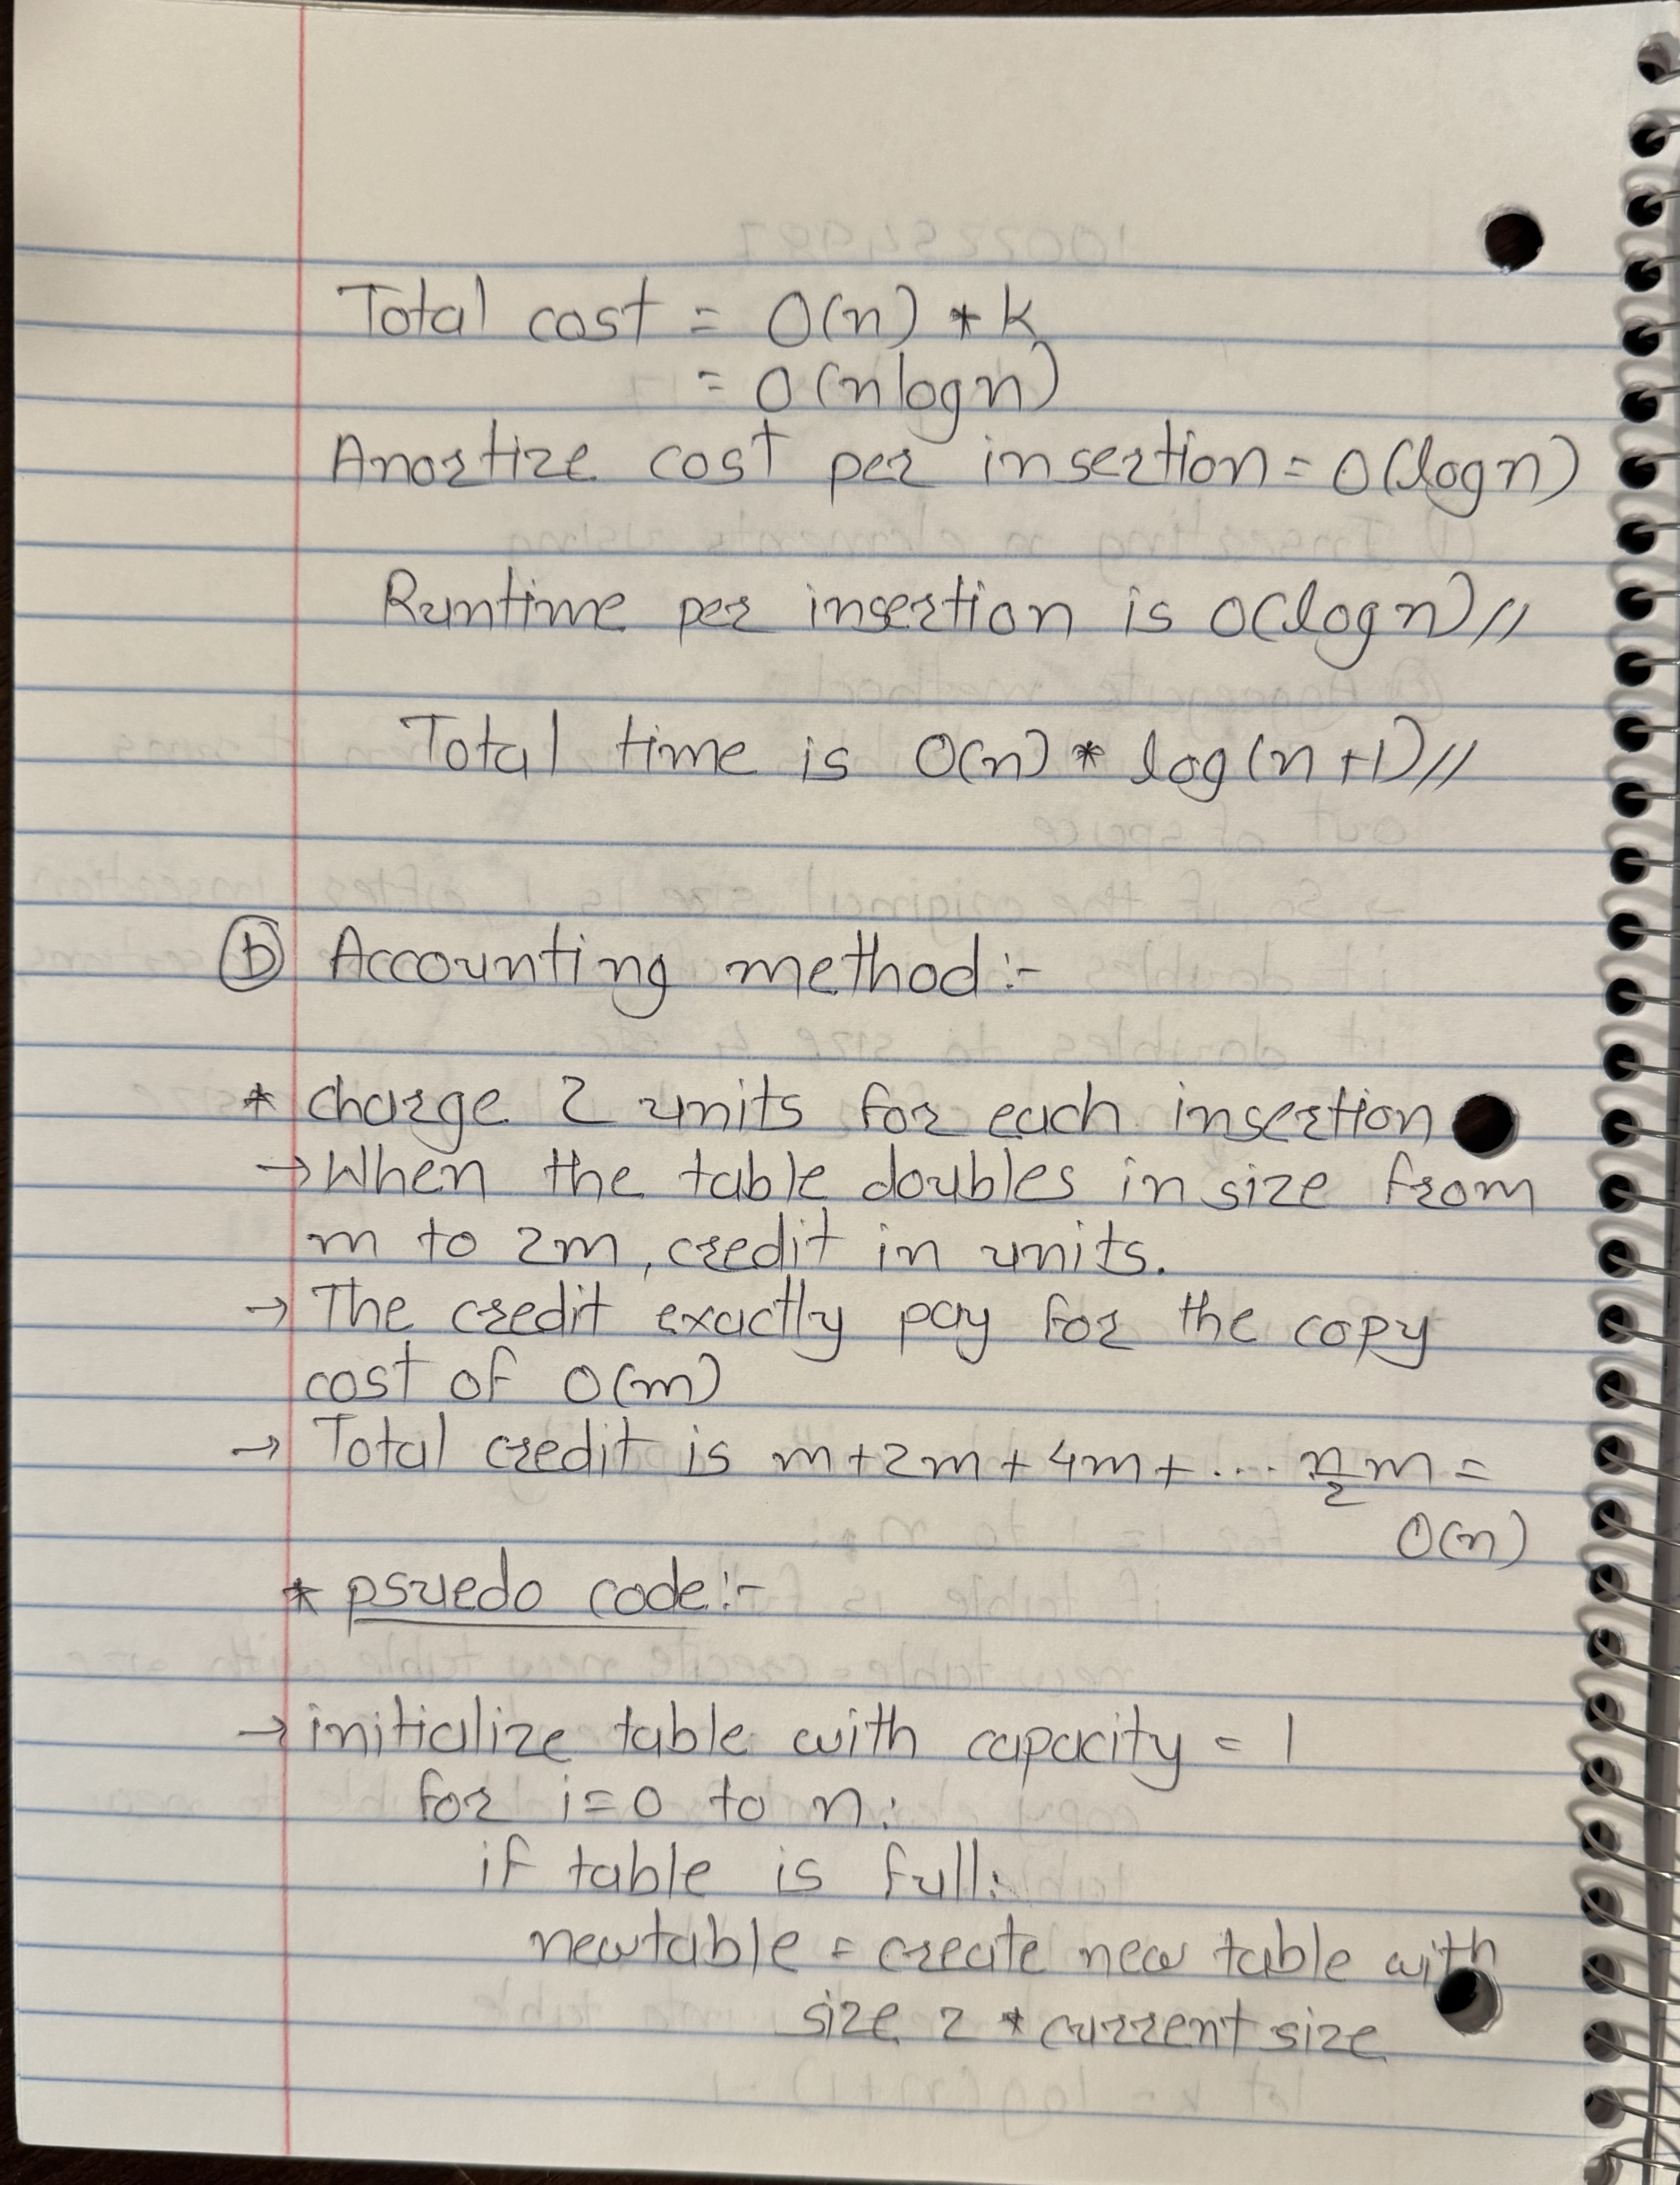 Total cost = O(n) * k
= O(nlogn)
Anortize cost per insertion = O(logn)
Runtime per insertion is O(logn)//
Total time is O(n) * log(n+1)//
(b) Accounting method:-
* charge 2 units for each insertion
→ When the table doubles in size from
m to 2m, credit in units.
→ The credit exactly pay for the copy
cost of O(m)
→ Total credit is m+2m+4m+... n/2 m =
O(n)
* psuedo code:-
→ initialize table with capacity = 1
for i=0 to n:
if table is full:
newtable = create new table with
size 2 * current size